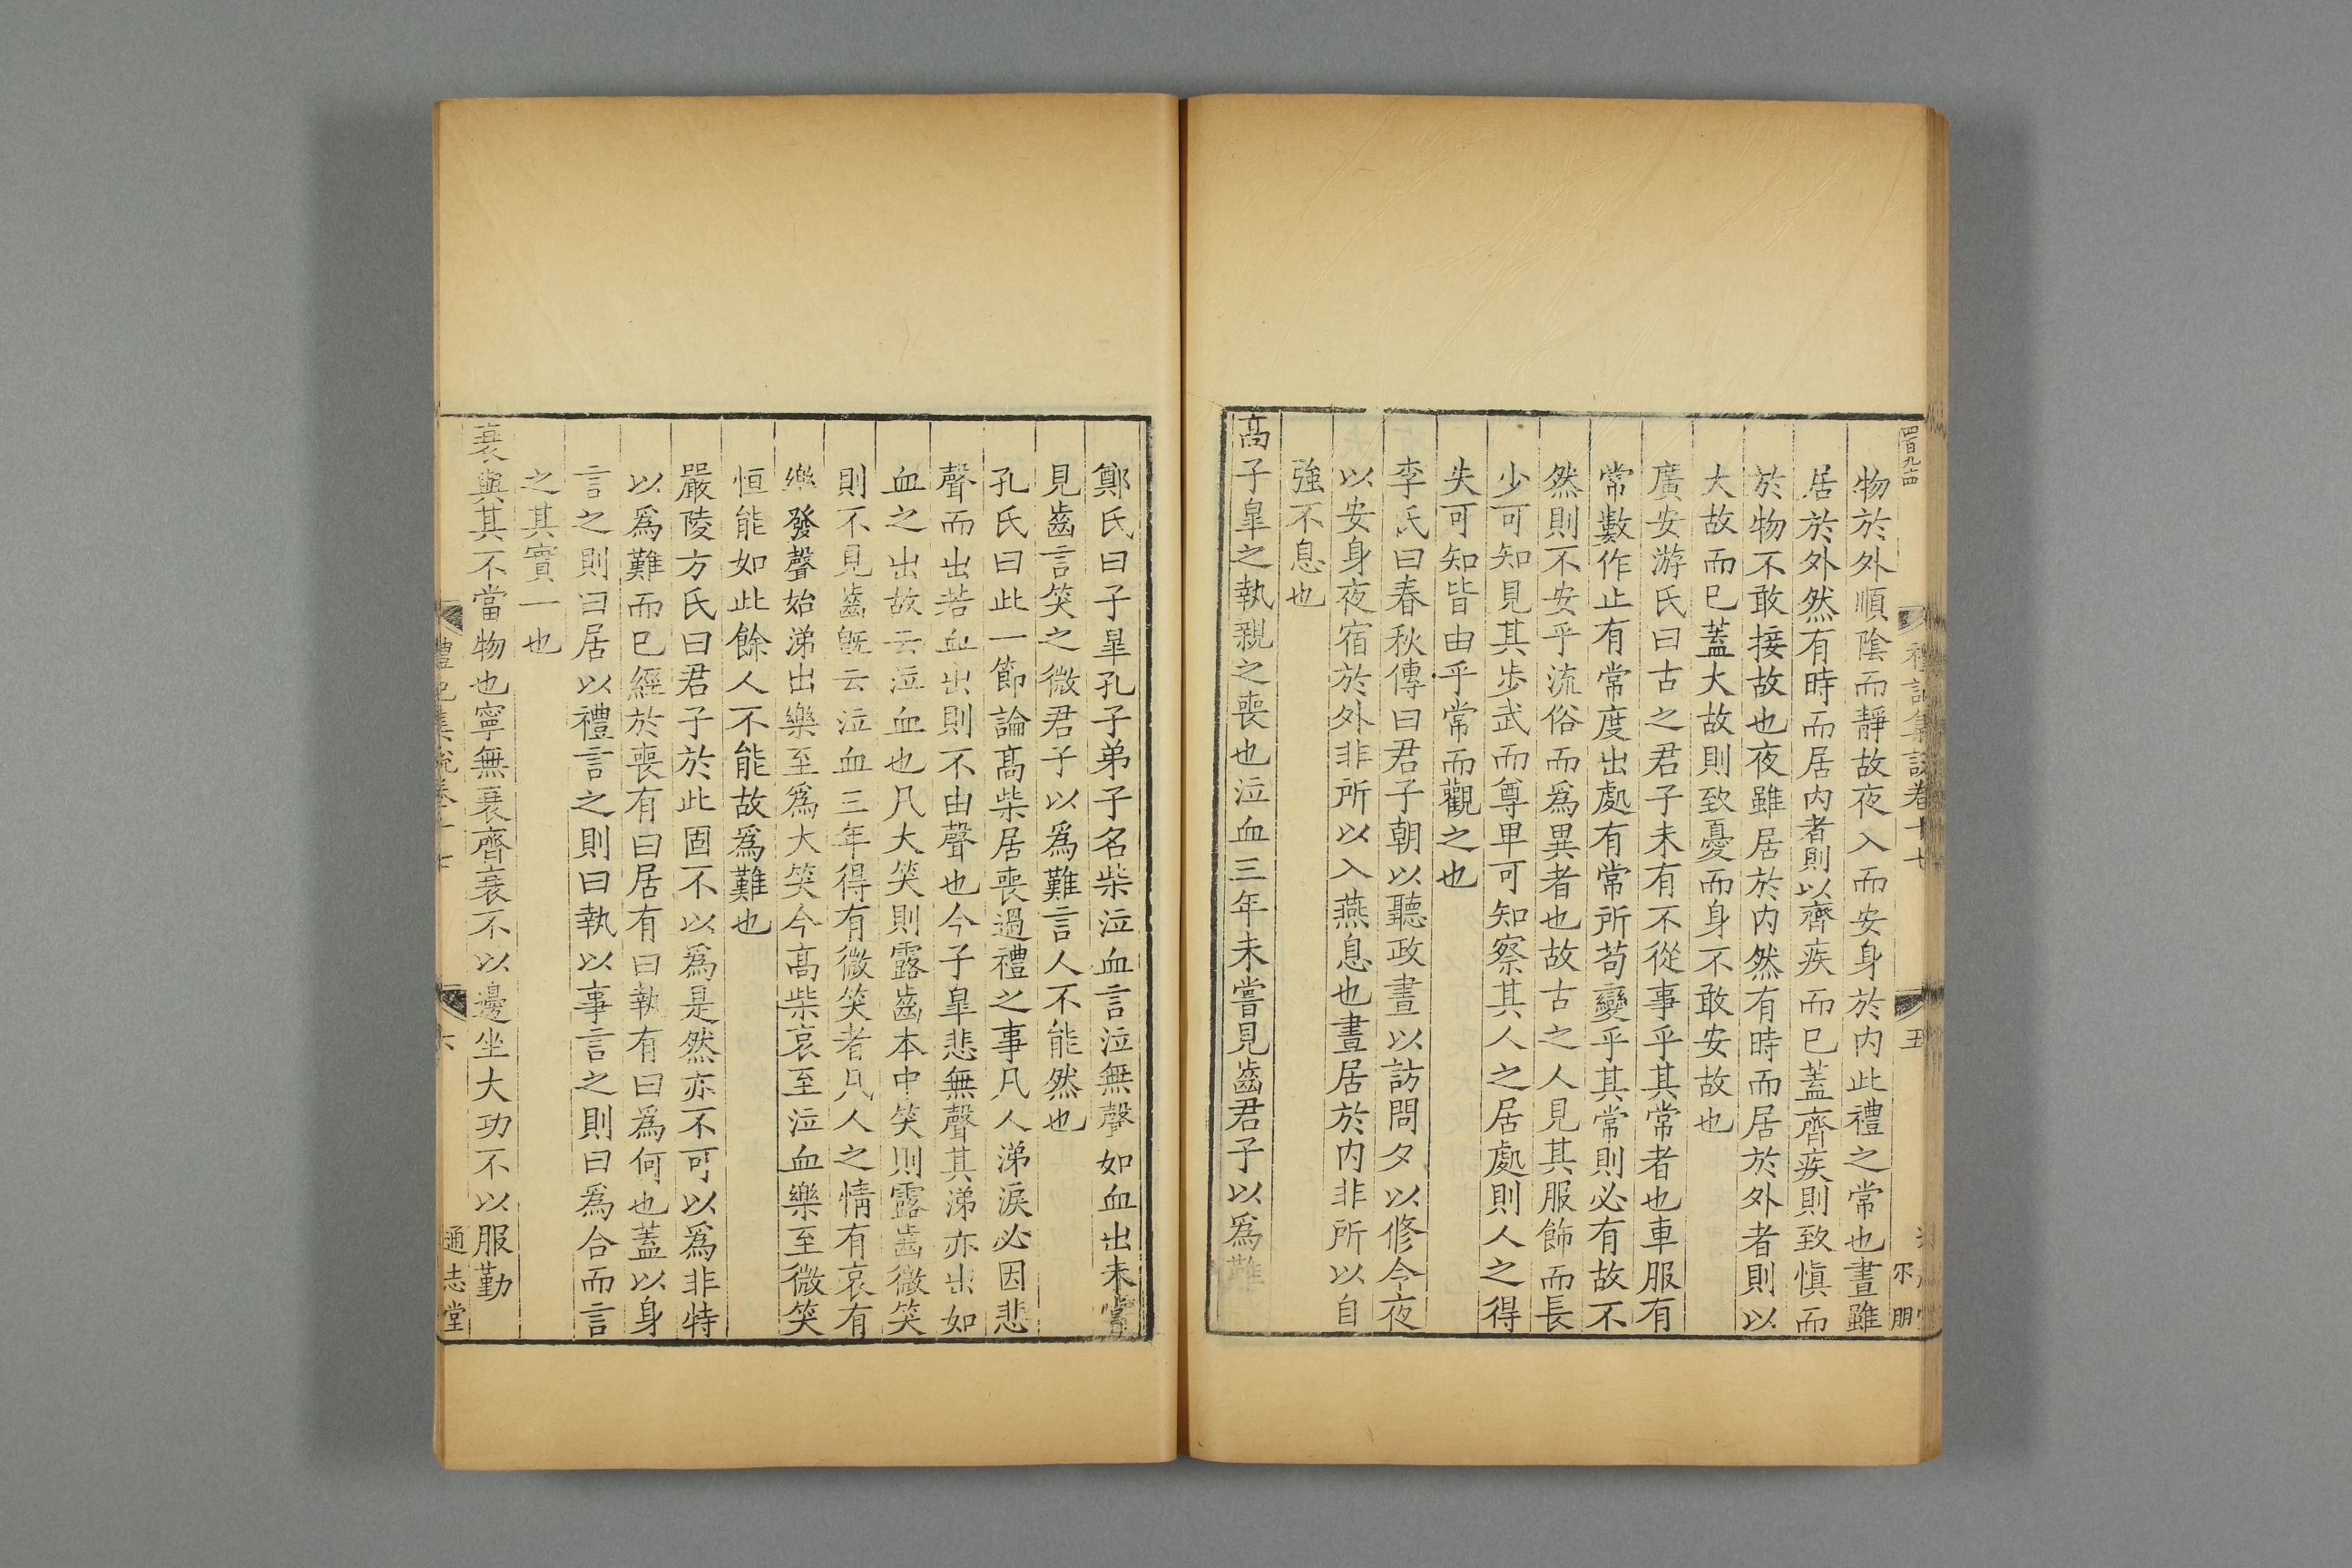 四百九十四
物於外順陰而靜故夜入而安身於内此禮之常也晝雖
居於外然有時而居内者則以齊疾而已蓋齊疾則致愼而
於物不敢接故也夜雖居於内然有時而居於外者則以
大故而已蓋大故則致憂而身不敢安故也
廣安游氏曰古之君子未有不從事乎其常者也車服有
常數作止有常度出處有常所苟變乎其常則必有故不
然則不安乎流俗而爲異者也故古之人見其服飾而長
少可知見其步武而尊卑可知察其人之居處則人之得
失可知皆由乎常而觀之也
李氏曰春秋傳曰君子朝以聽政晝以訪問夕以修令夜
以安身夜宿於外非所以入燕息也晝居於内非所以自
強不息也
高子臯之執親之喪也泣血三年未嘗見齒君子以爲難
禮記集說卷十七
五
朋
鄭氏曰子臯孔子弟子名柴泣血言泣無聲如血出未嘗
見齒言笑之微君子以爲難言人不能然也
孔氏曰此一節論高柴居喪過禮之事凡人涕淚必因悲
聲而出若血出則不由聲也今子臯悲無聲其涕亦出如
血之出故云泣血也凡大笑則露齒本中笑則露齒微笑
則不見齒旣云泣血三年得有微笑者凡人之情有哀有
樂發聲始涕出樂至爲大笑今高柴哀至泣血樂至微笑
恒能如此餘人不能故爲難也
嚴陵方氏曰君子於此固不以爲是然亦不可以爲非特
以爲難而已經於喪有曰居有曰執有曰爲何也蓋以身
言之則曰居以禮言之則曰執以事言之則曰爲合而言
之其實一也
衰與其不當物也寧無衰齊衰不以邊坐大功不以服勤
禮記集說卷十七
六
通志堂